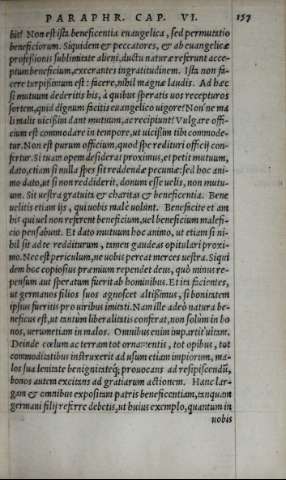 PARAPHR. CAP. VI. 157
bis? Non est ista beneficentia euangelica, sed permutatio
beneficiorum. Siquidem & peccatores, & ab euangelicæ
professionis sublimitate alieni, ductu naturæ referunt acce-
ptum beneficium, execrantes ingratitudinem. Ista non fa-
cere turpissimum est: facere, nihil magnæ laudis. Ad hæc
si mutuum dederitis his, à quibus speratis uos recepturos
sortem, quid dignum facitis euangelico uigore? Nonne ma
li malis uicissim dant mutuum, ac recipiunt? Vulgare offi-
cium est commodare in tempore, ut uicissim tibi commode-
tur. Non est purum officium, quod spe redituri officij con-
fertur. Si tuam opem desiderat proximus, et petit mutuum,
dato, etiam si nulla spes sit reddendæ pecuniæ: sed hoc ani-
mo dato, ut si non reddiderit, donum esse uelis, non mutu-
um. Sit uestra gratuita & charitas & beneficentia. Bene
uelitis etiam ijs, qui uobis malè uolunt. Benefacite et am
bis qui uel non referent beneficium, uel beneficium malefi-
cio pensabunt. Et dato mutuum hoc animo, ut etiam si ni-
hil sit ad te rediturum, tamen gaudeas opitulari proxi-
mo. Nec est periculum, ne uobis pereat merces uestra. Siqui
dem hoc copiosius præmium rependet deus, quò minus re-
pensum aut speratum fuerit ab hominibus. Et ita facientes,
ut germanos filios suos agnoscet altissimus, si bonitatem
ipsius fueritis pro uiribus imitati. Nam ille adeò natura be-
neficus est, ut tantum liberalitatis conferat, non solùm in bo
nos, uerumetiam in malos. Omnibus enim impartit uitam.
Deinde cœlum ac terram tot ornamentis, tot opibus, tot
commoditatibus instruxerit ad usum etiam impiorum, ma-
los sua lenitate benignitateq; prouocans ad resipiscendū,
bonos autem excitans ad gratiarum actionem. Hanc lar-
gam & omnibus expositam patris beneficentiam, tanquam
germani filij referre debetis, ut huius exemplo, quantum in
uobis